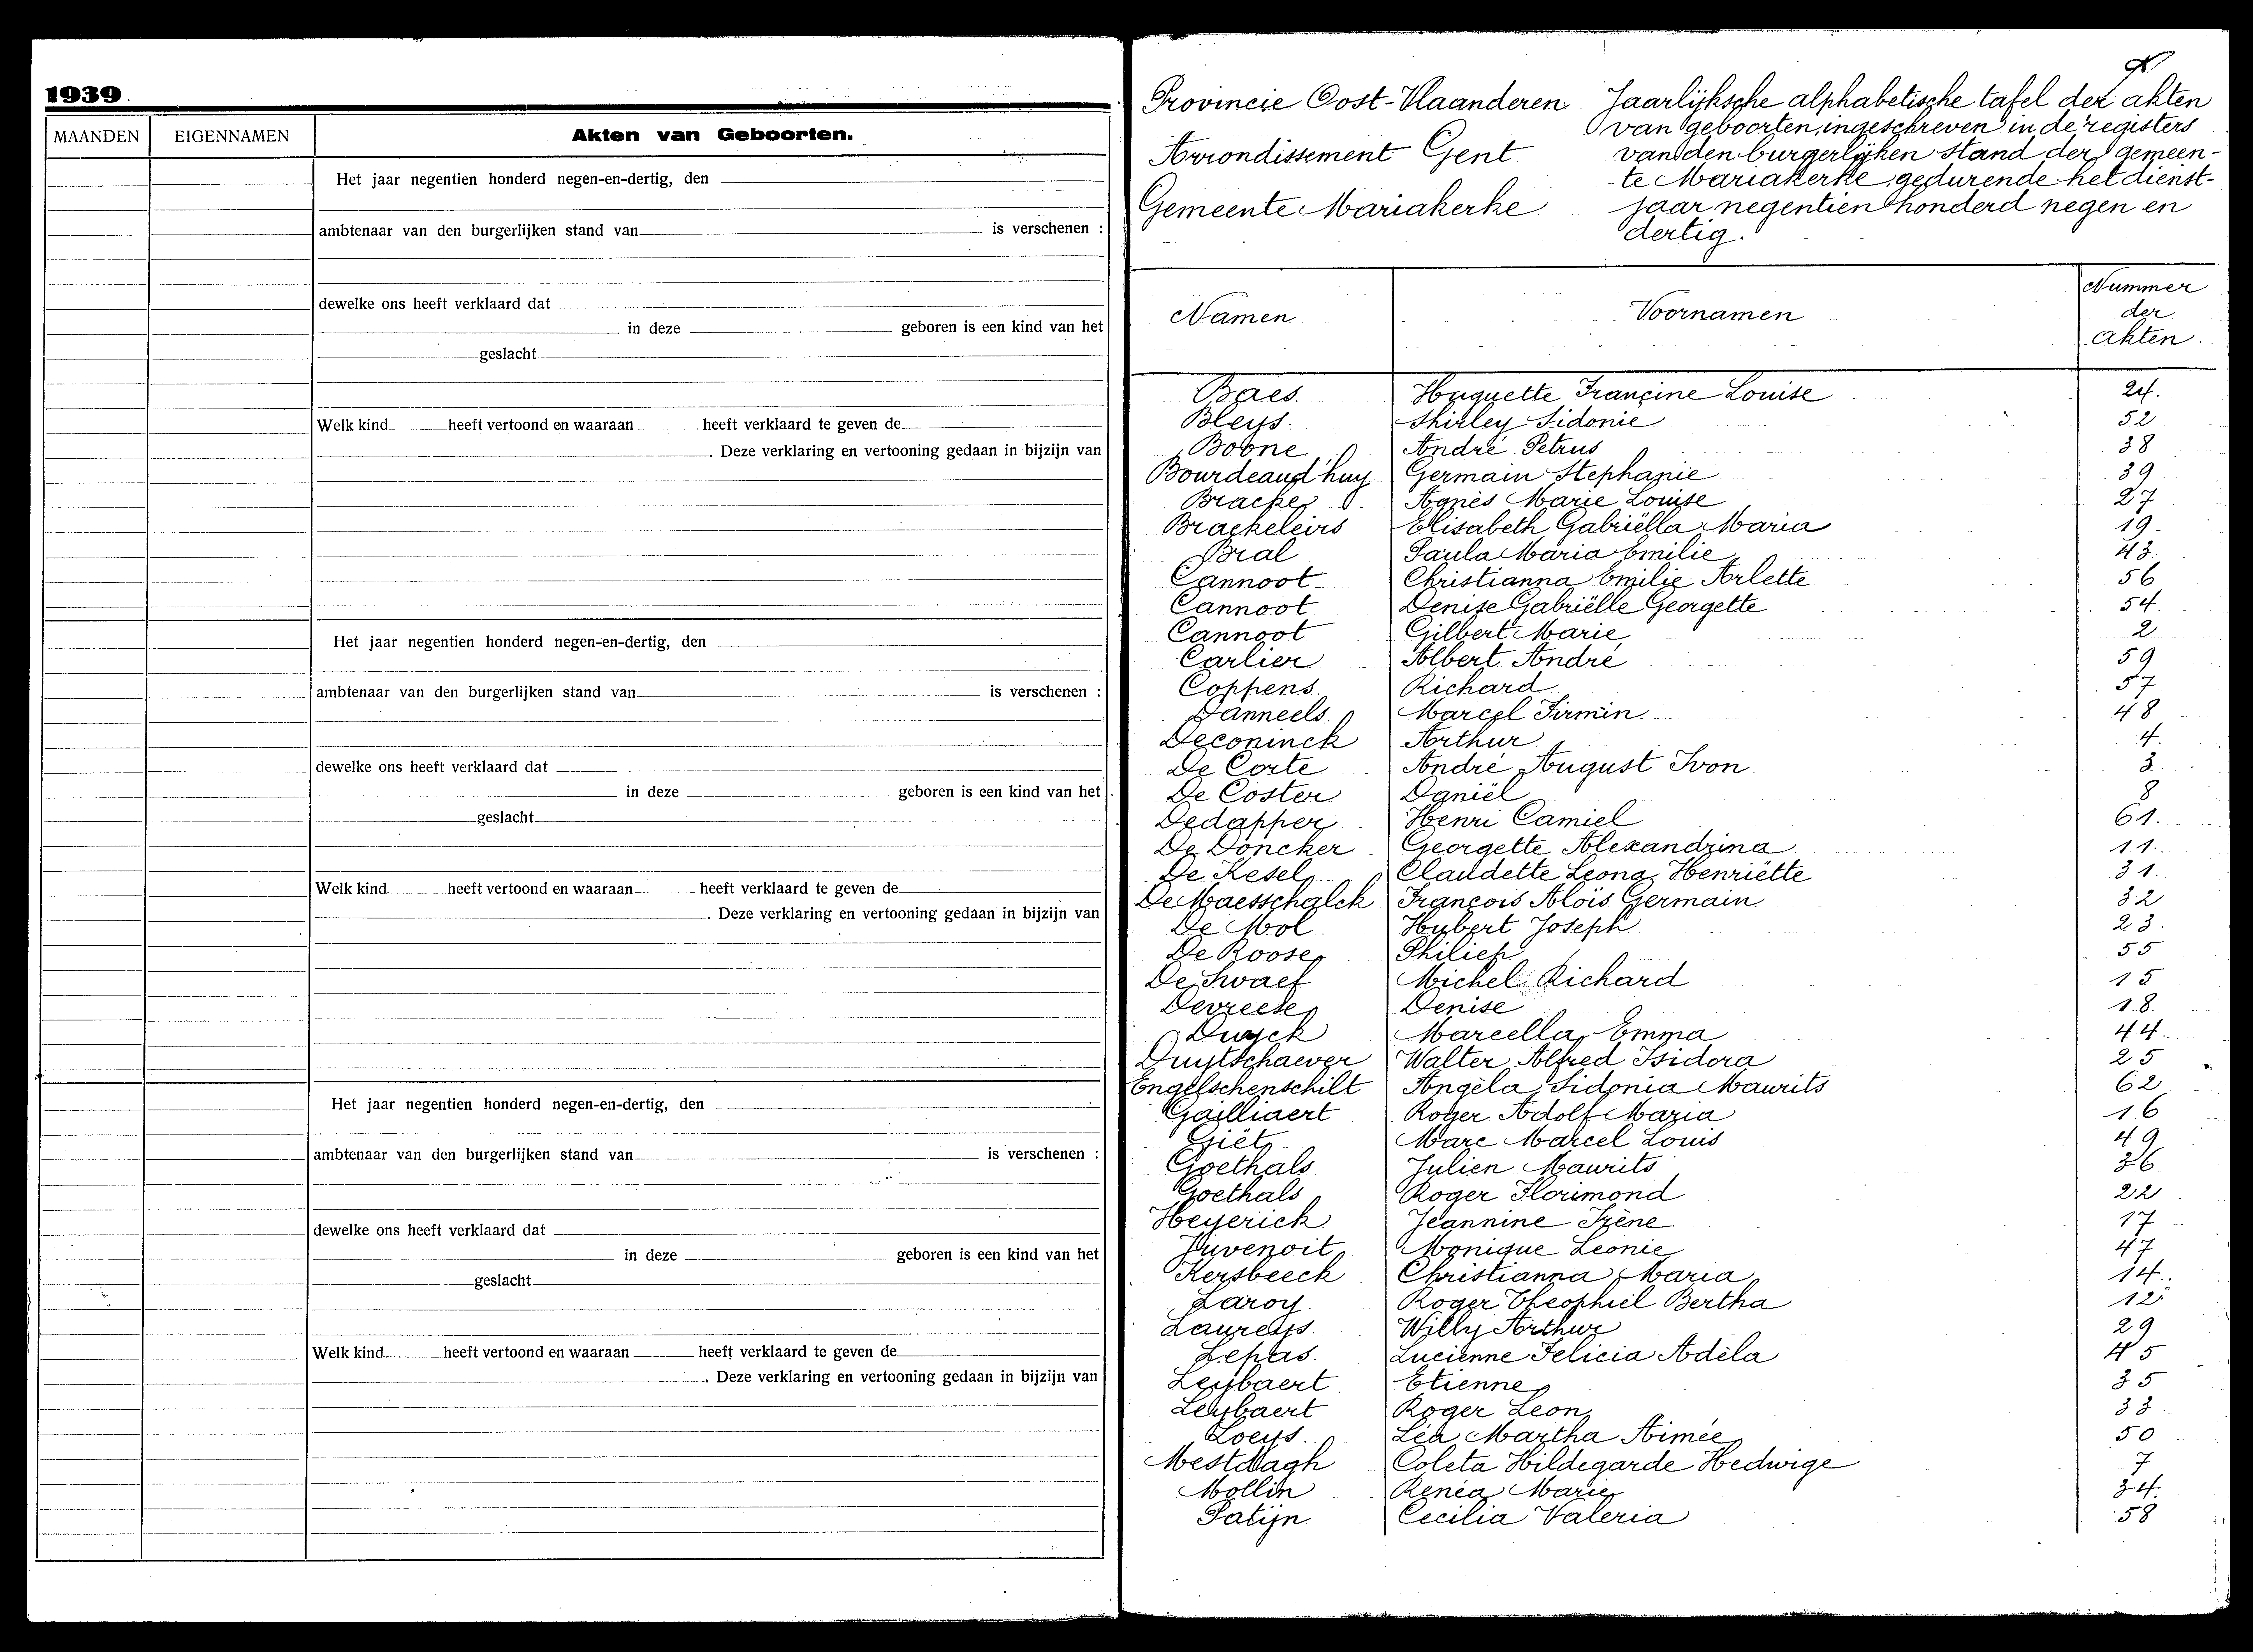 1939
MAANDEN EIGENNAMEN Akten van Geboorten.
Het jaar negentien honderd negen-en-dertig, den
ambtenaar van den burgerlijken stand van is verschenen :
dewelke ons heeft verklaard dat
in deze geboren is een kind van het
geslacht
Welk kind heeft vertoond en waaraan heeft verklaard te geven de
. Deze verklaring en vertooning gedaan in bijzijn van
Het jaar negentien honderd negen-en-dertig, den
ambtenaar van den burgerlijken stand van is verschenen :
dewelke ons heeft verklaard dat
in deze geboren is een kind van het
geslacht
Welk kind heeft vertoond en waaraan heeft verklaard te geven de
. Deze verklaring en vertooning gedaan in bijzijn van
Het jaar negentien honderd negen-en-dertig, den
ambtenaar van den burgerlijken stand van is verschenen :
dewelke ons heeft verklaard dat
in deze geboren is een kind van het
geslacht
Welk kind heeft vertoond en waaraan heeft verklaard te geven de
. Deze verklaring en vertooning gedaan in bijzijn van
Provincie Oost-Vlaanderen
Arrondissement Gent
Gemeente Mariakerke
Jaarlijksche alphabetische tafel der akten
van geboorten, ingeschreven in de registers
van den burgerlijken stand der gemeen-
-te Mariakerke, gedurende het dienst-
jaar negentien honderd negen en
dertig.
Namen Voornamen Nummer der akten.
Baes Huguette Françine Louise 24.
Bleys Shirley Sidonie 52
Boone André Petrus 38
Bourdeaud'huy Germain Stephanie 39
Bracke Agnès Marie Louise 27
Braekeleirs Elisabeth Gabriëlla Maria 19
Bral Paula Maria Emilie 43.
Cannoot Christianna Emilie Arlette 56
Cannoot Denise Gabriëlle Georgette 54
Cannoot Gilbert Marie 2
Carlier Albert André 59
Coppens Richard 57
Danneels Marcel Firmin 48
Deconinck Arthur 4.
De Corte André August Ivon 3.
De Coster Daniël 8
Dedapper Henri Camiel 61.
De Doncker Georgette Alexandrina 11.
De Kesel Claudette Leona Henriëtte 31.
De Maesschalck François Aloïs Germain 32
De Mol Hubert Joseph 23.
De Roose Philiep 55
De Swaef Michel Richard 15
Devreese Denise 18
Duyck Marcella Emma 44.
Duytschaever Walter Alfred Isidora 25
Engelschenschilt Angèla Sidonia Maurits 62
Gailliaert Roger Adolf Maria 16
Giët Marc Marcel Louis 49
Goethals Julien Maurits 36
Goethals Roger Florimond 22
Heyerick Jeannine Irène 17
Juvenoit Monique Leonie 47
Kersbeeck Christianna Maria 14.
Laroy Roger Theophiel Bertha 12
Laureys Willy Arthur 29
Lepas Lucienne Felicia Adèla 45
Leybaert Etienne 35
Leybaert Roger Leon 33.
Loeys Léa Martha Aimée 50
Mestdagh Coleta Hildegarde Hedwige 7
Mollin Renéa Marie 34.
Patijn Cecilia Valeria 58